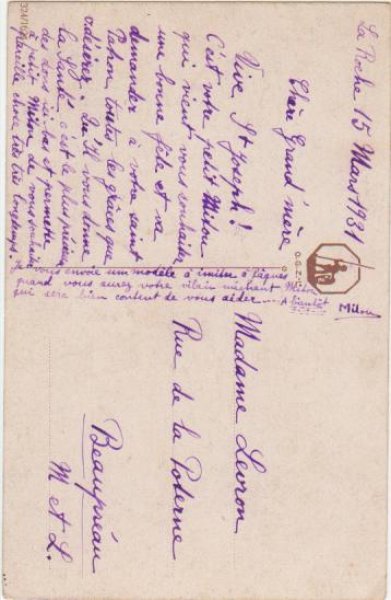 La Roche 15 Mars 1931
Chère Grand'mère
Vive St Joseph !
C'est votre petit Milou
qui vient vous souhaiter
une bonne fête et va
demander à votre saint
Patron toutes les grâces que
v. désirez. Qu'Il vous donne
la Santé c'est le plus précieux
des dons ici-bas et permette
à petit Milou de vous souhaiter
pareille chose très très longtemps.
Je vous envoie un modèle à imiter à Pâques
quand vous aurez votre vilain méchant Milou
qui sera bien content de vous aider --- A bientôt
Milou
O.G.Z.
Madame Levron
Rue de la Poterne
Beaupréau
M et L.